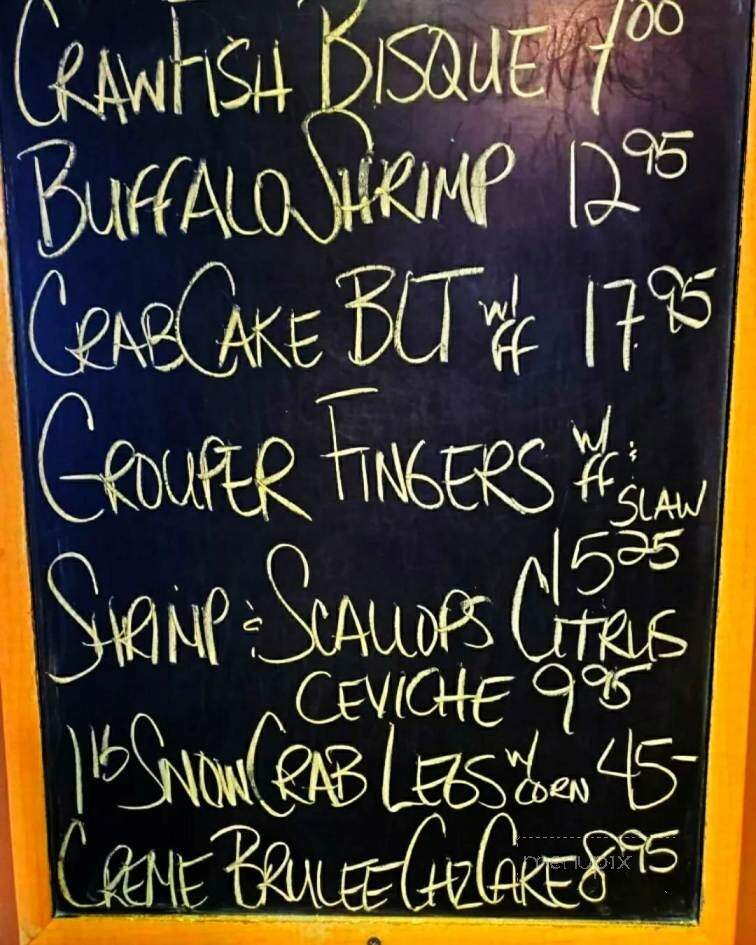 CRAWFISH BISQUE 7.00
BUFFALO SHRIMP 12 95
CRAB CAKE BLT w/ FF 17.95
GROUPER FINGERS w/ FF & SLAW
15 25
SHRIMP & SCALLOPS CITRUS
CEVICHE 9 95
1 lb SNOW CRAB LEGS w/ CORN 45-
CREME BRULEE CHZ CAKE 8 95
menupix